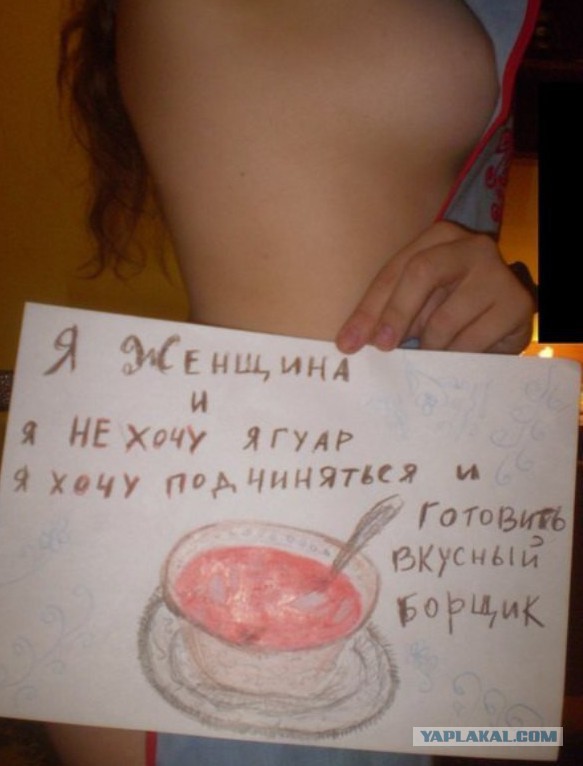 Я ЖЕНЩИНА
И
Я НЕ ХОЧУ ЯГУАР
Я ХОЧУ ПОДЧИНЯТЬСЯ И
ГОТОВИТЬ
ВКУСНЫЙ
БОРЩИК
YAPLAKAL.COM